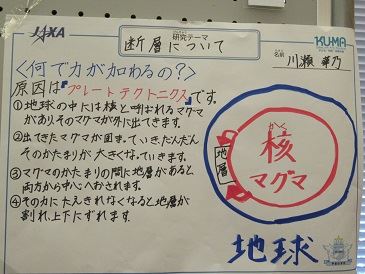 JAXA
研究テーマ
断層について
KUMA
名前
川瀬
<何で力が加わるの?>
原因は『プレートテクトニクス』です。
①地球の中には核と呼ばれるマグマ
があり、そのマグマが外に出てきます。
②出てきたマグマが固まっていき、だんだん
そのかたまりが大きくなっていきます。
③マグマのかたまりの間に地層があると
両方から中心へおされます。
④その力にたえきれなくなると地層が
割れ、上下にずれます。
かく
核
マグマ
地層
地球